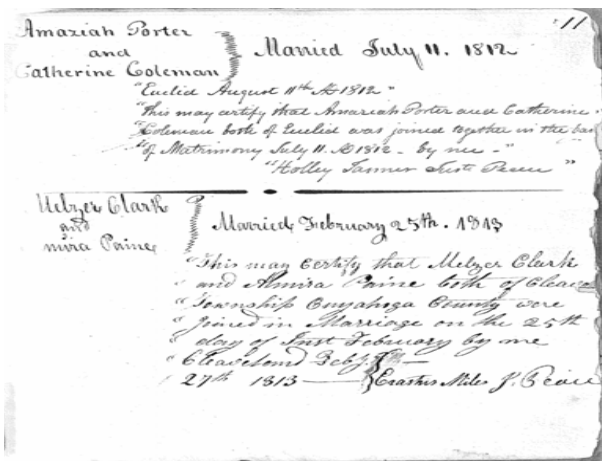 11
Amaziah Porter
and
Catherine Coleman
Married July 11. 1812
"Euclid August 11th AD 1812"
"This may certify that Amaziah Porter and Catherine
"Coleman both of Euclid was joined together in the
"of Matrimony July 11. AD 1812 - by me -"
"Holley Tanner Just Peace"
Melzer Clark
and
mira Paine
Married February 25th. 1813
"This may Certify that Melzer Clark
" and Almira Paine both of
" Township Cuyahoga County were
" Joined in Marriage on the 25th
" day of Inst February by me
" Cleaveland
" 27th 1813 — Erastus Miles J. Peace